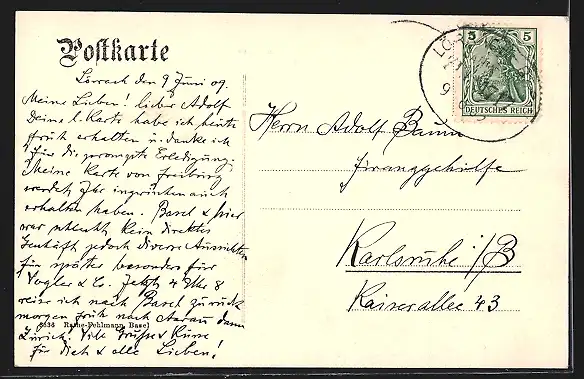 Postkarte
Lörrach den 9 Juni 09.
Meine Lieben! lieber Adolf
Deine l. Karte habe ich heute
früh erhalten u. danke ich
für die prompte Erledigung.
Meine Karte von Freiburg
werdet Ihr inzwischen auch
erhalten haben. Basel & hier
war schlecht kein direktes
Geschäft jedoch diverse Aussichten
für später besonders für
Vogler & Co. Jetzt 4 Uhr 8
reise ich nach Basel zurück
morgen früh nach Aarau dann
Zürich. Viele Grüsse & Küsse
für Dich & alle Lieben!
Rathe-Fehlmann, Basel
5
5
DEUTSCHES REICH
Herrn Adolf Baum
Karlsruhe i/B
Kaiserallee 43